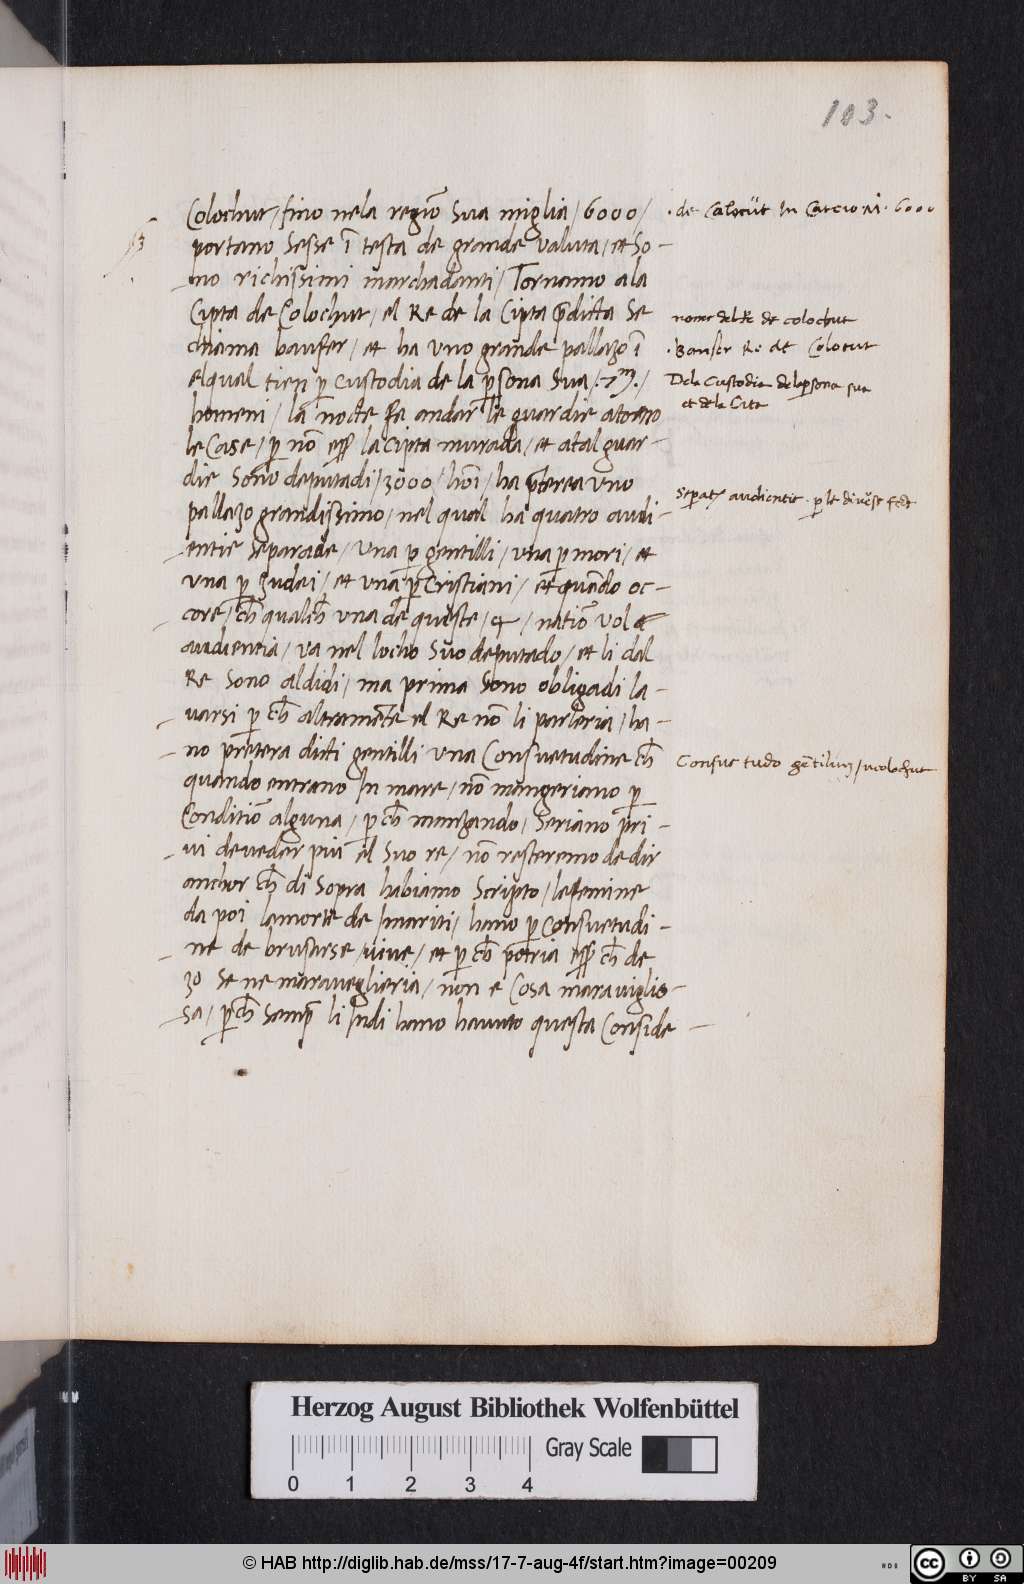 103.
Colochut / fino nela regiō sua miglia / 6000 /
portano sesse ī testa de grande valuta / et so-
no richissimi marchadanti / Tornamo a la
Cipta de Colochut / el Re de la Cipta p̄dicta se
chiama banser / et ha uno grande pallazo ī
el qual tien p custodia de la psona sua /
homeni / la nocte fa andar le guardie atorno
le Case / p nō esser la cipta murada / et a tal guar-
die sono deputadi / 3000 / hoī / ha p̄terea uno
pallazo grandissimo / nel qual ha quatro audi-
entie separade / una p gentilli / una p mori / et
una p Judei / et una p Cristiani / et quādo oc-
core / ch̄ qualch̄ una de queste / 4 / natiō vol
audientia / va nel locho suo deputado / et li dal
Re sono aldidi / ma prima sono obligadi la-
varsi p ch̄ altramēte el Re nō li parleria / ha-
no preterea dicti gentilli una Consuetudine ch̄
quando entrano In mare / nō mangeriano p
Conditiō alguna / p ch̄ manzando / seriano pri-
vi de veder piui el suo re / nō resteremo de dir
anchor ch̄ di sopra habiamo scripto / le femine
da poi la morte de / mariti / hano p consuetudi-
ne de brusarse / vive / et p ch̄ potria esser ch̄ de
zo se ne maraveglieria / non e Cosa maraviglio-
sa / p ch̄ semp li Indi hano havuto questa Conside-
de Calocut In 6000
nome del Re de colochut
Banser Re de Colocut
Dela Custodia dela persona sua
et dela Cita
Separat. audientie p le diverse fede
Consuetudo gentilium / in colochut
Herzog August Bibliothek Wolfenbüttel
0 1 2 3 4
Gray Scale
© HAB http://diglib.hab.de/mss/17-7-aug-4f/start.htm?image=00209
cc BY SA